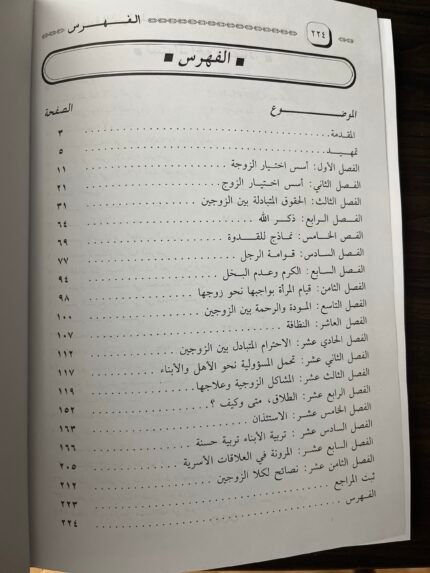 ٢٢٤ الفهرس
الفهرس
الموضوع الصفحة
المقدمة ٣
تمهيد ٥
الفصل الأول: أسس اختيار الزوجة ١١
الفصل الثاني: أسس اختيار الزوج ٢١
الفصل الثالث: الحقوق المتبادلة بين الزوجين ٣١
الفصل الرابع: ذكر الله ٦٤
الفصل الخامس: نماذج للقدوة ٦٩
الفصل السادس: قوامة الرجل ٧٧
الفصل السابع: الكرم وعدم البخل ٩٤
الفصل الثامن: قيام المرأة بواجبها نحو زوجها ٩٨
الفصل التاسع: المودة والرحمة بين الزوجين ١٠٠
الفصل العاشر: النظافة ١٠٧
الفصل الحادي عشر: الاحترام المتبادل بين الزوجين ١١٢
الفصل الثاني عشر: تحمل المسؤولية نحو الأهل والأبناء ١١٧
الفصل الثالث عشر: المشاكل الزوجية وعلاجها ١١٩
الفصل الرابع عشر: الطلاق، متى وكيف ؟ ١٥٢
الفصل الخامس عشر: الاستئذان ١٦٣
الفصل السادس عشر: تربية الأبناء تربية حسنة ١٦٦
الفصل السابع عشر: المرونة في العلاقات الأسرية ٢٠٥
الفصل الثامن عشر: نصائح لكلا الزوجين ٢١٢
ثبت المراجع ٢٢٣
الفهرس ٢٢٤